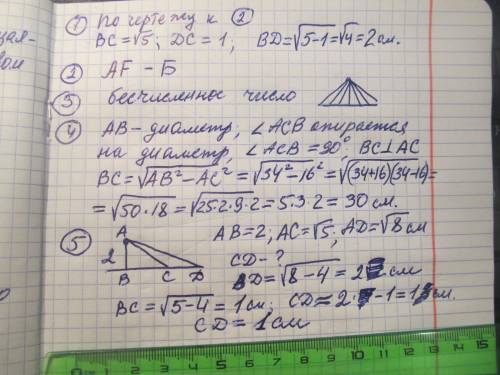 ① По чертежу к ②
BC=√5; DC=1; BD=√5-1=√4=2см.
② AF - Б
③ бесчисленное число
④ AB-диаметр, ∠ACB опирается
на диаметр, ∠ACB=90°, BC⊥AC
BC=√AB²-AC²=√34²-16²=√(34+16)(34-16)=
=√50·18=√25·2·9·2=5·3·2=30 см.
⑤ AB=2; AC=√5, AD=√8 см
A
2
B C D
CD-?
BD=√8-4=2 см
BC=√5-4=1см; CD=2-1=1см.
CD=1см
0 см 1 2 3 4 5 6 7 8 9 10 11 12 13 14 15